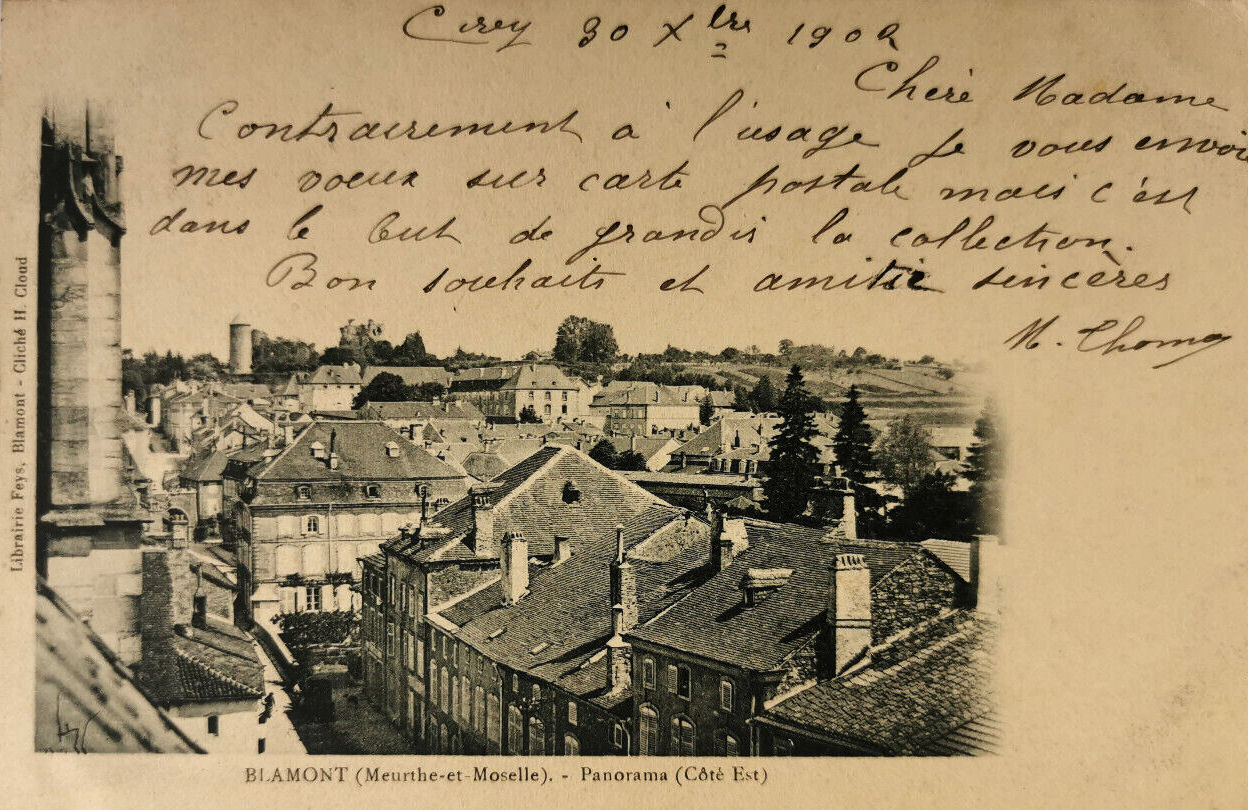 Cirey 30 Xbre 1902
Chère Madame
Contrairement à l'usage je vous envoie
mes voeux sur carte postale mais c'est
dans le but de grandir la collection.
Bon souhaits et amitié sincères
M. Thomas
BLAMONT (Meurthe-et-Moselle). - Panorama (Côté Est)
Librairie Feys, Blamont - Cliché H. Cloud